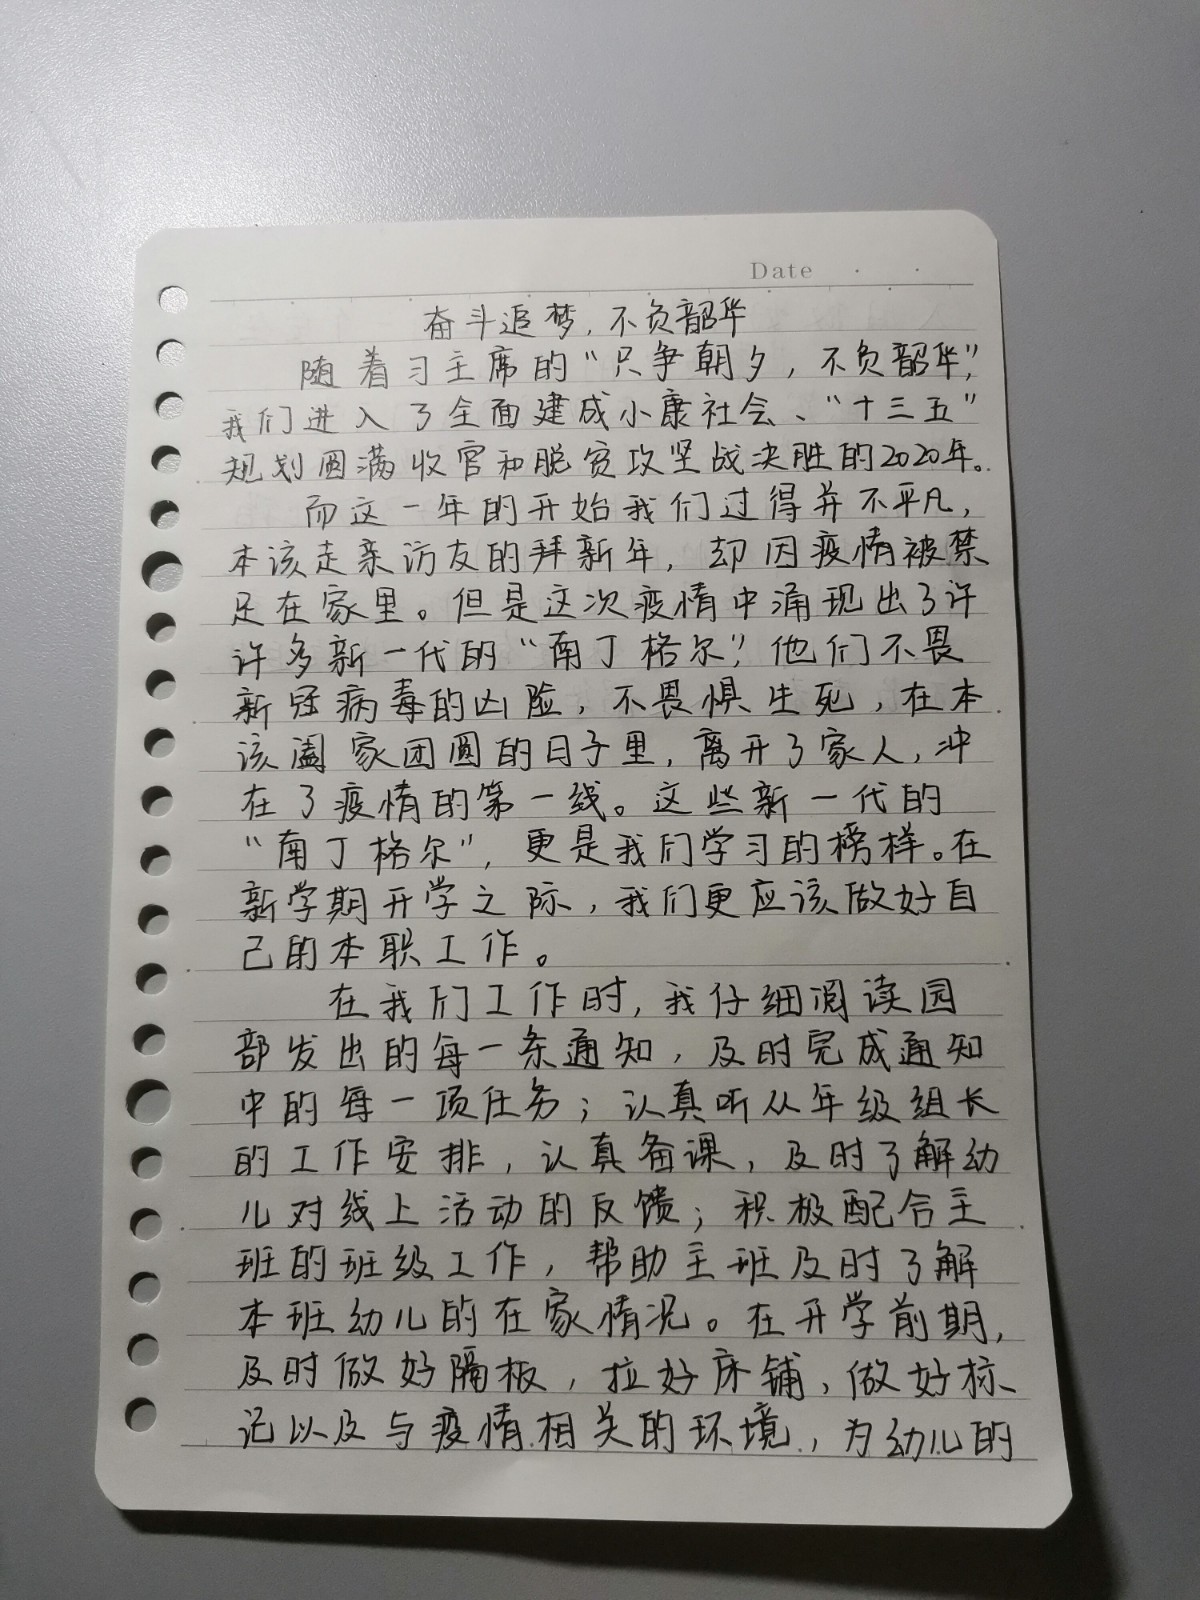 Date
奋斗追梦，不负韶华
随着习主席的“只争朝夕，不负韶华”，
我们进入了全面建成小康社会、“十三五”
规划圆满收官和脱贫攻坚战决胜的2020年。
而这一年的开始我们过得并不平凡，
本该走亲访友的拜新年，却因疫情被禁
足在家里。但是这次疫情中涌现出了许
许多新一代的“南丁格尔”，他们不畏
新冠病毒的凶险，不畏惧生死，在本
该阖家团圆的日子里，离开了家人，冲
在了疫情的第一线。这些新一代的
“南丁格尔”，更是我们学习的榜样。在
新学期开学之际，我们更应该做好自
己的本职工作。
在我们工作时，我仔细阅读园
部发出的每一条通知，及时完成通知
中的每一项任务；认真听从年级组长
的工作安排，认真备课，及时了解幼
儿对线上活动的反馈；积极配合主
班的班级工作，帮助主班及时了解
本班幼儿的在家情况。在开学前期，
及时做好隔板，拉好床铺，做好标
记以及与疫情相关的环境，为幼儿的